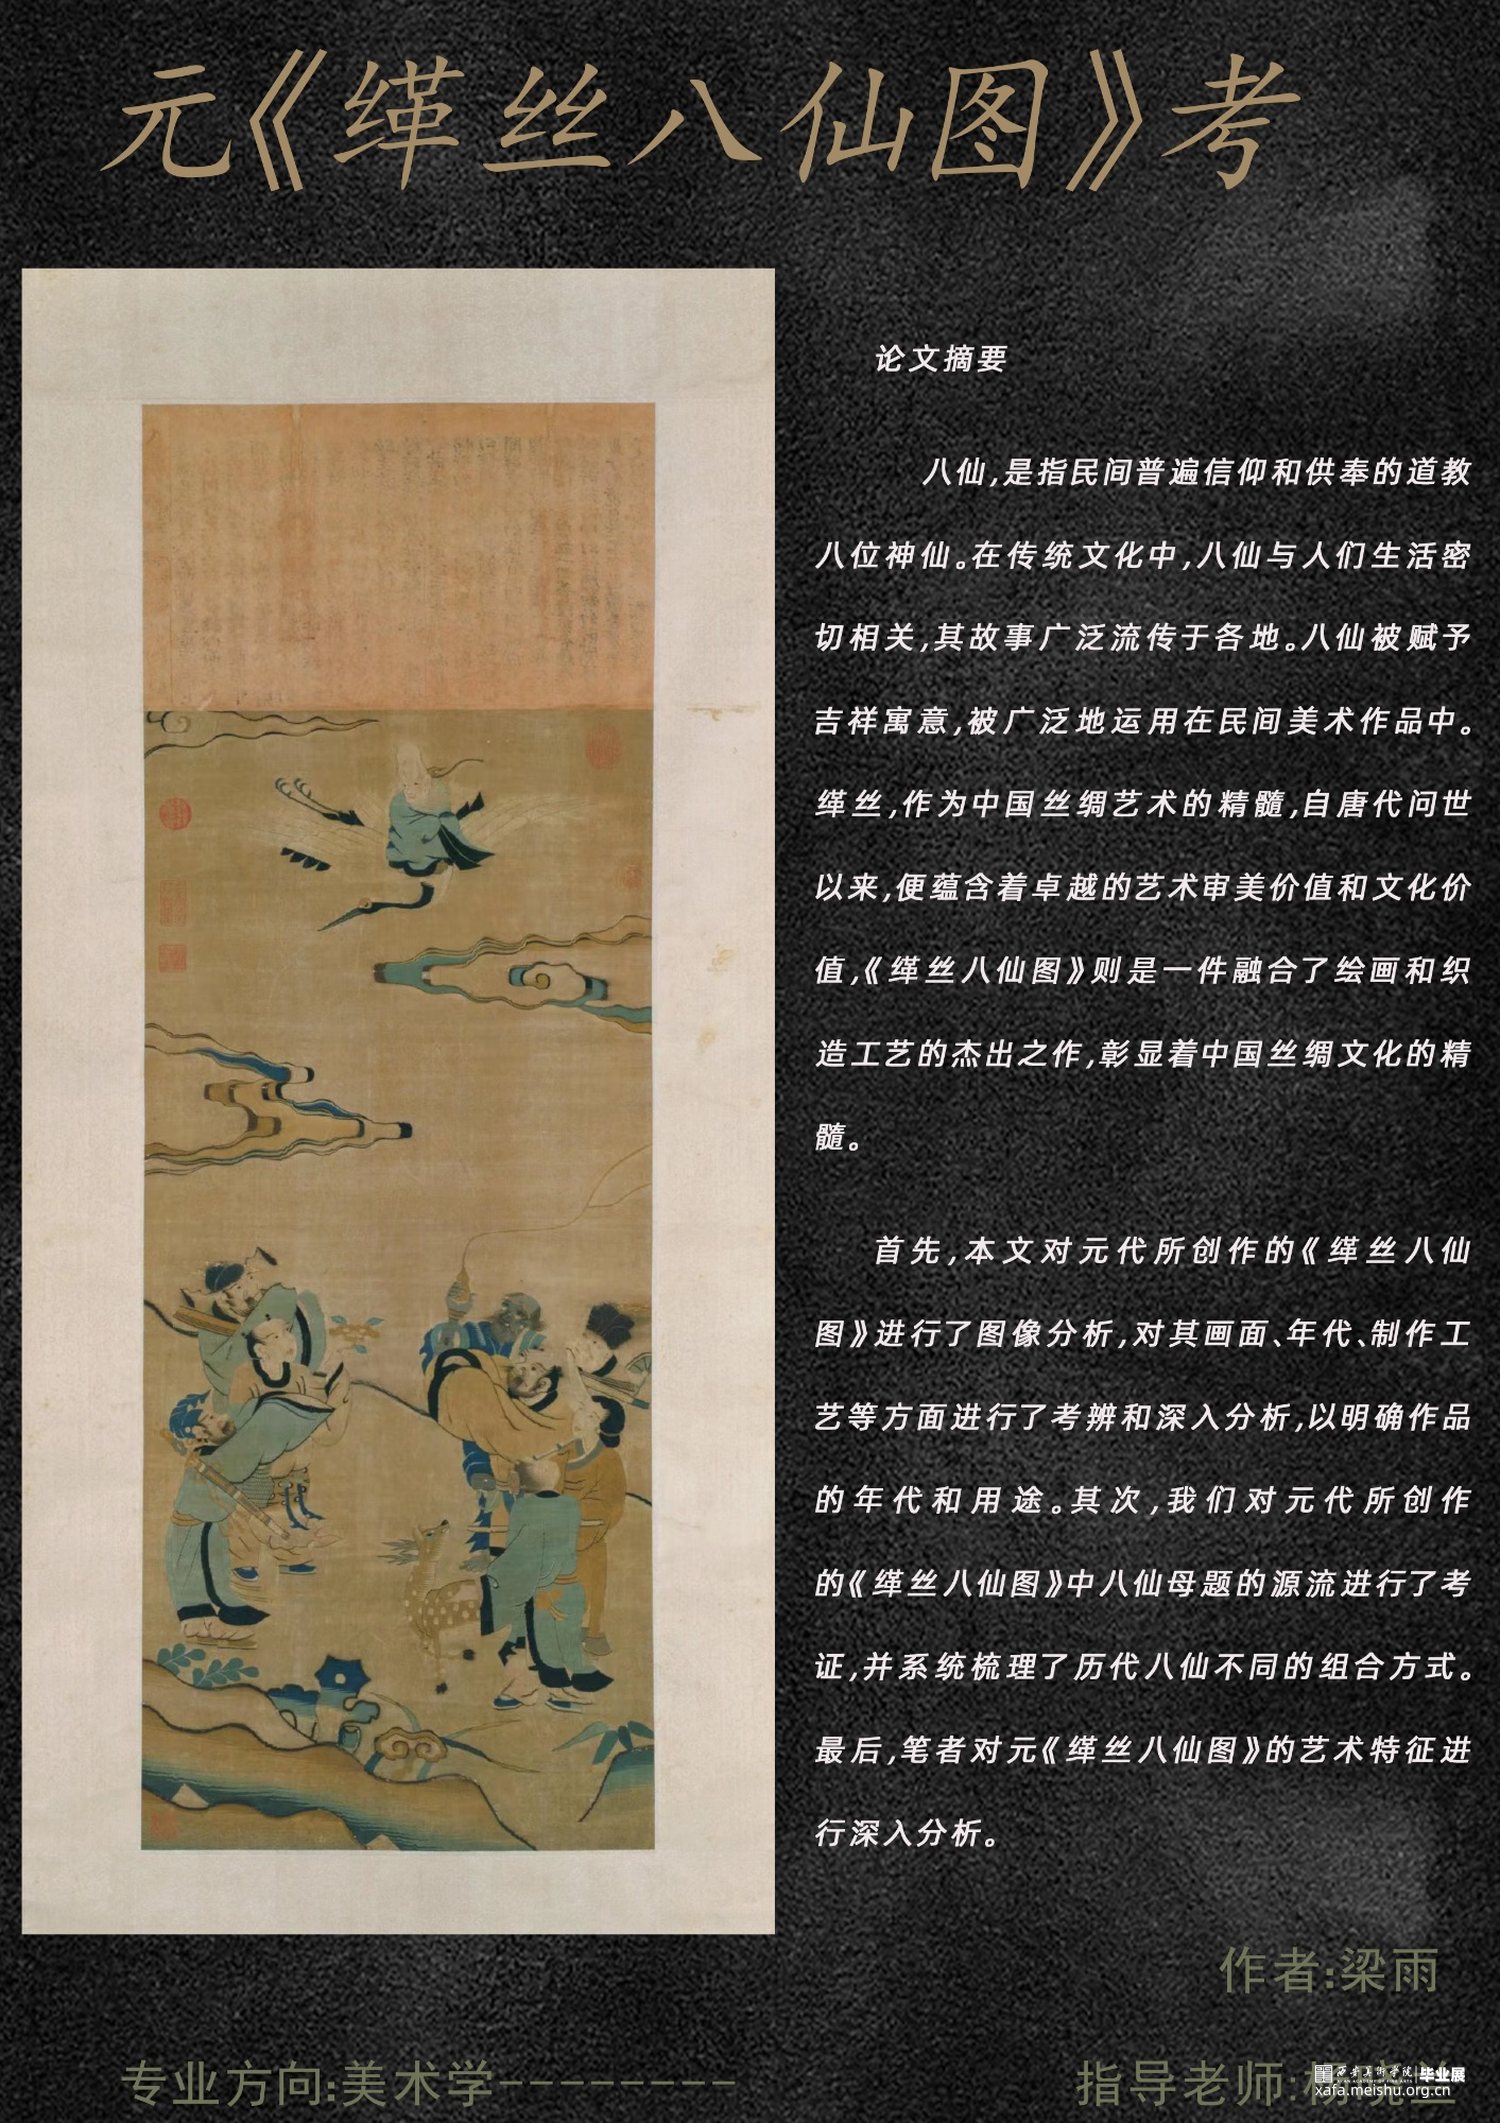 元《缂丝八仙图》考
论文摘要
八仙,是指民间普遍信仰和供奉的道教
八位神仙。在传统文化中,八仙与人们生活密
切相关,其故事广泛流传于各地。八仙被赋予
吉祥寓意,被广泛地运用在民间美术作品中。
缂丝,作为中国丝绸艺术的精髓,自唐代问世
以来,便蕴含着卓越的艺术审美价值和文化价
值,《缂丝八仙图》则是一件融合了绘画和织
造工艺的杰出之作,彰显着中国丝绸文化的精
髓。
首先,本文对元代所创作的《缂丝八仙
图》进行了图像分析,对其画面、年代、制作工
艺等方面进行了考辨和深入分析,以明确作品
的年代和用途。其次,我们对元代所创作
的《缂丝八仙图》中八仙母题的源流进行了考
证,并系统梳理了历代八仙不同的组合方式。
最后,笔者对元《缂丝八仙图》的艺术特征进
行深入分析。
作者:梁雨
专业方向:美术学--------
指导老师:
西安美术学院 毕业展
xafa.meishu.org.cn